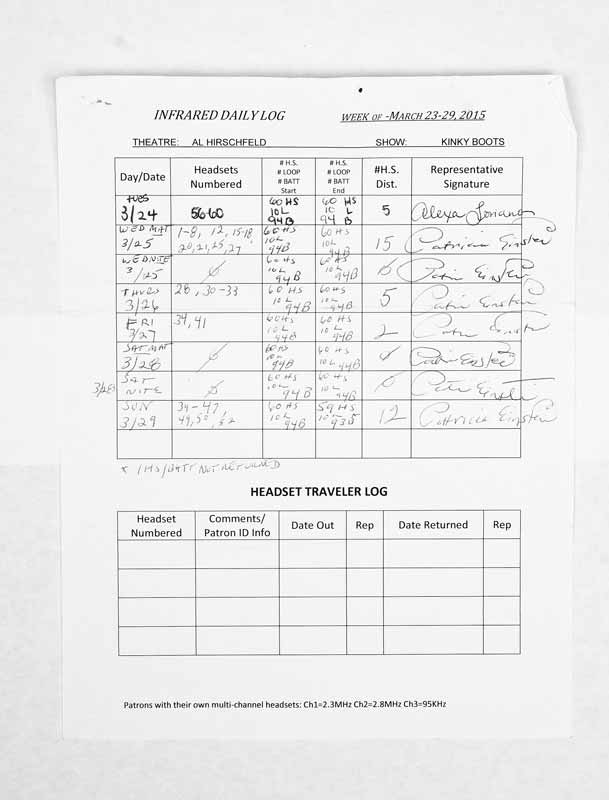 INFRARED DAILY LOG WEEK OF -MARCH 23-29, 2015
THEATRE: AL HIRSCHFELD SHOW: KINKY BOOTS
Day/Date Headsets Numbered # H.S. # LOOP # BATT Start # H.S. # LOOP # BATT End #H.S. Dist. Representative Signature
TUES 3/24 56-60 60 HS 10L 94B 60 HS 10 L 94 B 5 Alexa
WED MAT 3/25 1-8, 12, 15-18, 20, 21, 25, 27 60HS 10L 94B 60HS 10L 94B 15 Patricia Einster
WED NITE 3/25 ∅ 60HS 10L 94B 60HS 10L 94B ∅ Einster
THURS 3/26 28, 30-33 60 HS 10L 94B 60HS 10L 94B 5 Einster
FRI 3/27 34, 41 60HS 10L 94B 60HS 10L 94B 2 Einster
SAT MAT 3/28 ∅ 60HS 10L 94B 60HS 10L 94B ∅ Einster
3/28 SAT NITE ∅ 60HS 10L 94B 60HS 10L 94B ∅
SUN 3/29 60HS 10L 94B 59HS 10L 93B 12 Patricia Einster
* 1HS/BATT NOT RETURNED
HEADSET TRAVELER LOG
Headset Numbered Comments/ Patron ID Info Date Out Rep Date Returned Rep
Patrons with their own multi-channel headsets: Ch1=2.3MHz Ch2=2.8MHz Ch3=95KHz